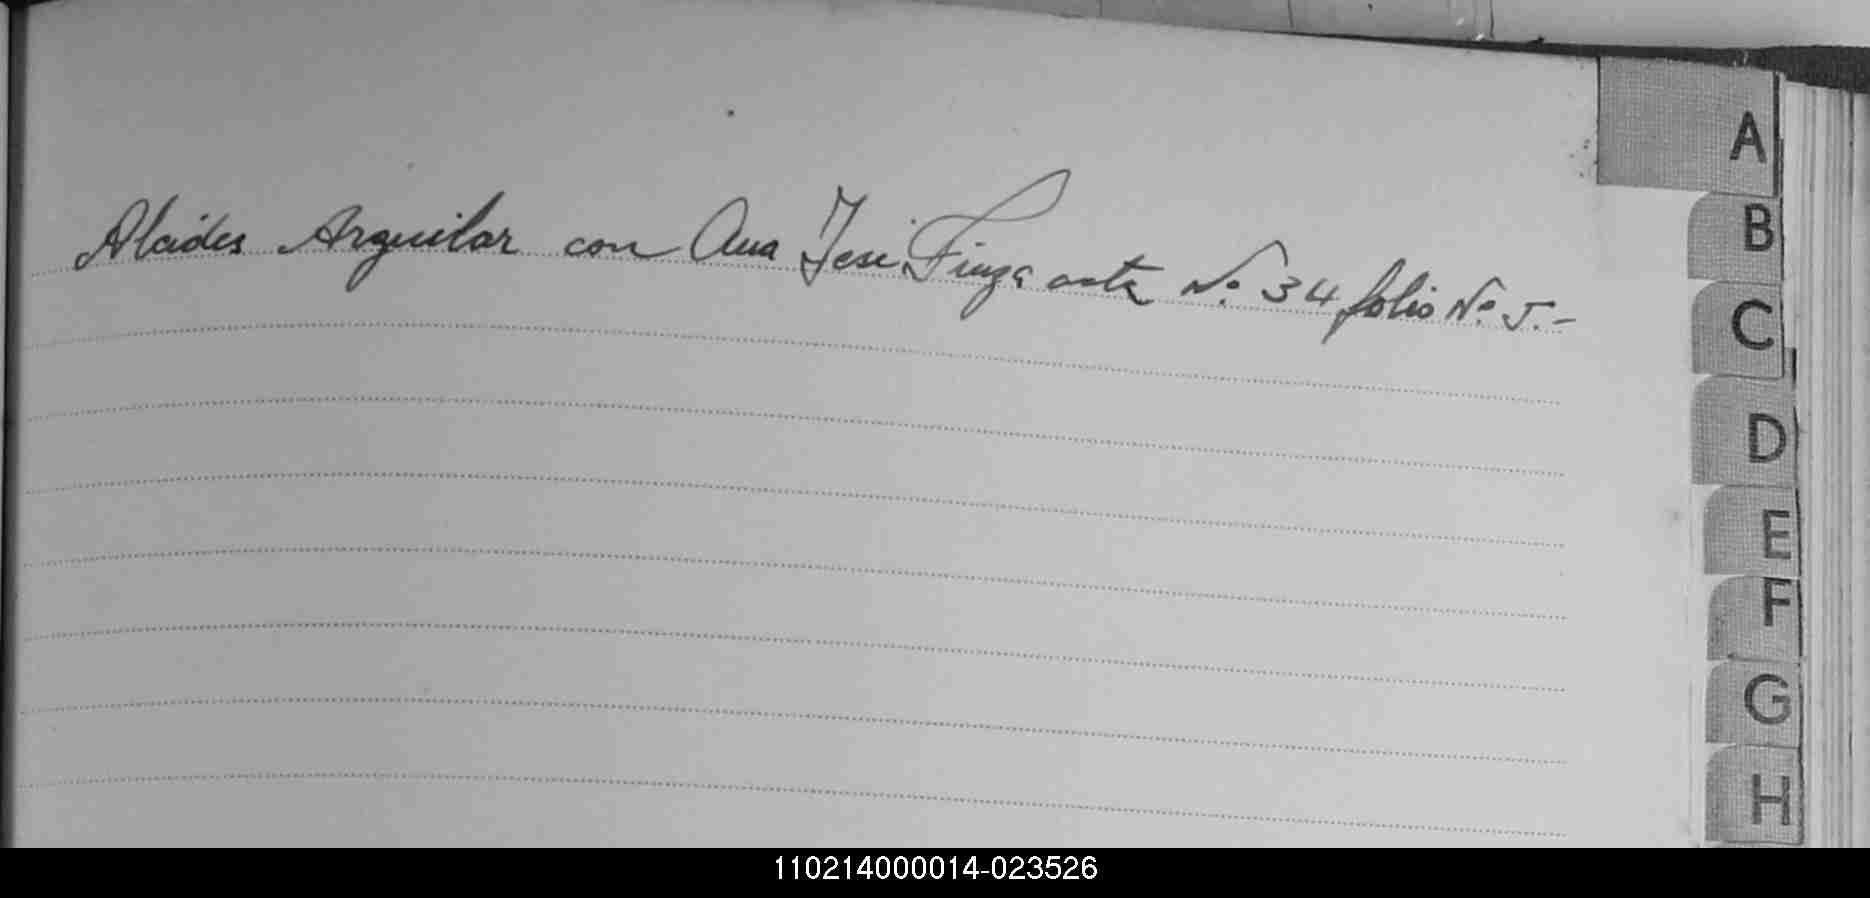 Alcides Arguilar con Ana Jesi Finza acta No. 34 folio No. 5.-
A
B
C
D
E
F
G
H
110214000014-023526